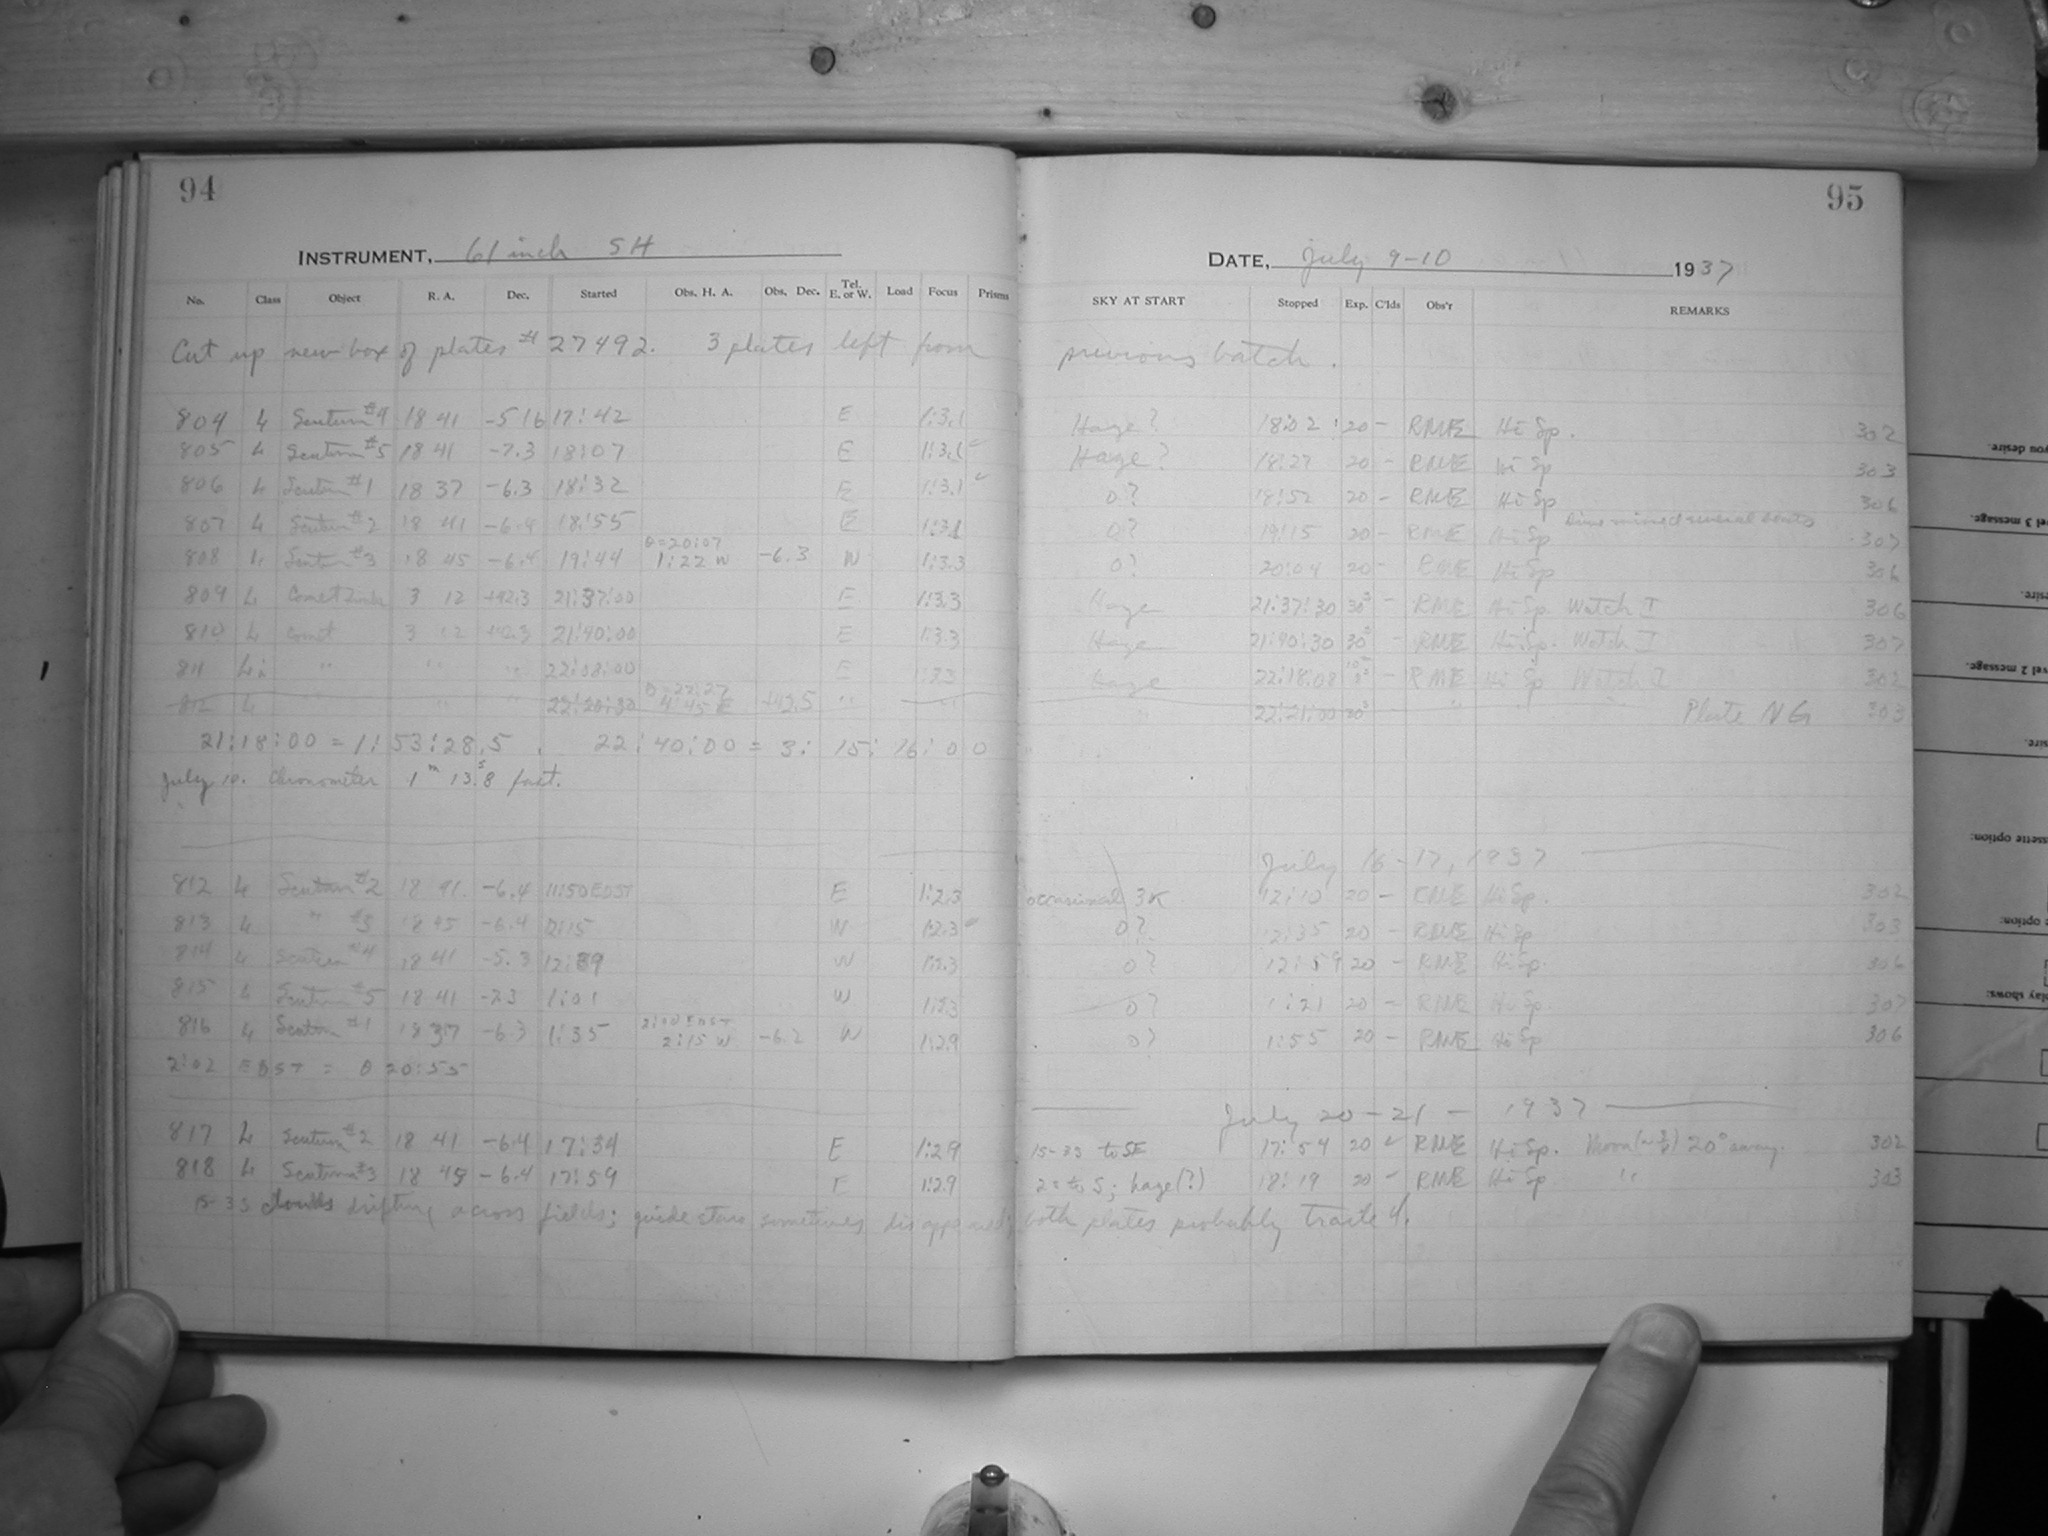 94
95
INSTRUMENT, 61 inch SH
DATE, July 9-10 1937
No. Class Object R. A. Dec. Started Obs. H. A. Obs. Dec. Tel. E. or W. Load Focus Prisms SKY AT START Stopped Exp. C'lds Obs'r REMARKS
Cut up new box of plates # 27492. 3 plates left from previous batch.
804 4 Scutum #4 18 41 -5 16 17:42 E 1:3.1 Haze? 18:02 20 - RME Hi Sp. 302
805 4 Scutum #5 18 41 -7.3 18:07 E 1:3.1 Haze? 18:27 20 - RME Hi Sp 303
806 4 Scutum #1 18 37 -6.3 18:32 E 1:3.1 0? 18:52 20 - RME Hi Sp 306
807 4 Scutum #2 18 41 -6.4 18:55 E 1:3.1 0? 19:15 20 - RME Hi Sp 307
808 4 Scutum #3 18 45 -6.4 19:44 θ=20:07 1:22 W -6.3 W 1:3.3 0? 20:04 20 - RME Hi Sp 306
809 4 Comet 3 12 +42.3 21:37:00 E 1:3.3 Haze 21:37:30 30s - RME Hi Sp. Watch I 306
810 4 Comet 3 12 21:40:00 E 1:3.3 Haze 21:40:30 30s - RME Hi Sp. Watch I 307
811 4 " " " 22:08:00 E 1:3.3 Haze 22:18:08 - RME Hi Sp Watch I 302
812 4 " " " 22:20:30 θ=22:27 4:45 E +42.5 " " " 22:21:00 30s " " " Plate NG 303
21:18:00 = 1:53:28.5. 22:40:00 = 3:15:16:00
July 10. Chronometer 1m 13.8s fast.
July 16-17, 1937
812 4 Scutum #2 18 41 -6.4 11:50 EDST E 1:2.3 occasional 3K 12:10 20 - RME Hi Sp. 302
813 4 " #3 18 45 -6.4 12:15 W 1:2.3 0? 12:35 20 - RME Hi Sp 303
814 4 Scutum #4 18 41 -5.3 12:39 W 1:2.3 0? 12:59 20 - RME Hi Sp. 306
815 4 Scutum #5 18 41 -7.3 1:01 W 1:2.3 0? 1:21 20 - RME Hi Sp 307
816 4 Scutum #1 18 37 -6.3 1:35 2:15 W -6.2 W 1:2.9 0? 1:55 20 - RME Hi Sp 306
2:02 EDST = θ 20:55
July 20-21 - 1937
817 4 Scutum #2 18 41 -6.4 17:34 E 1:2.9 to SE 17:54 20 RME Hi Sp. Moon 20° away. 302
818 4 Scutum #3 18 45 -6.4 17:59 E 1:2.9 to S; haze(?) 18:19 20 - RME Hi Sp " 303
clouds drifting across fields; guide stars sometimes disappeared; both plates probably
you desire.
vel 3 message.
esire.
vel 2 message.
sire.
ssette option:
e option:
play shows: